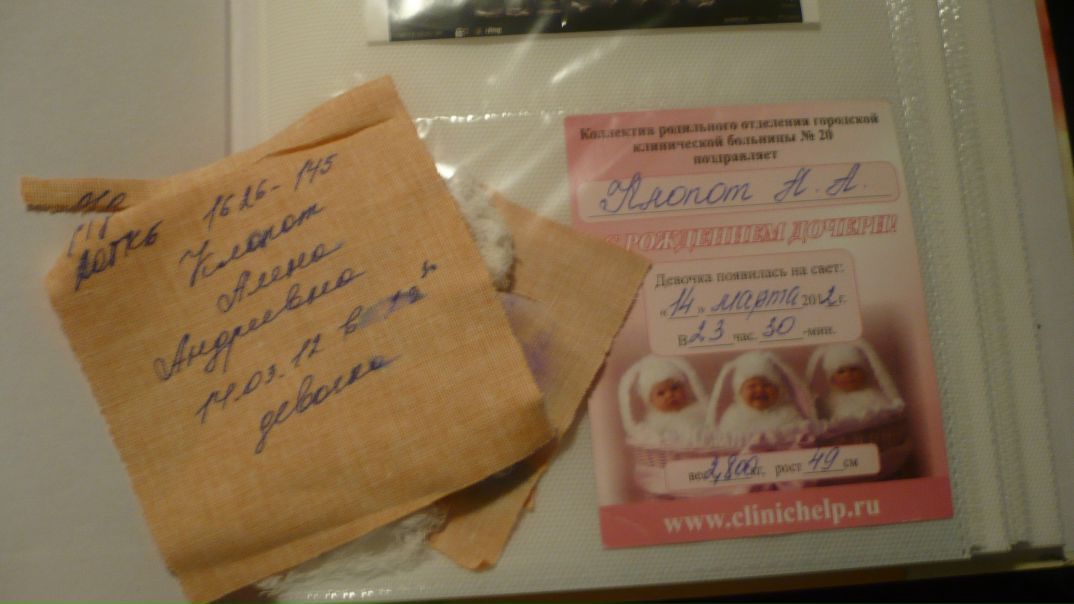 1626-145
Клопот
Алена
Андреевна
14.03.12 в
девочка
Коллектив родильного отделения городской
клинической больницы № 20
поздравляет
Клопот Н. А.
С РОЖДЕНИЕМ ДОЧЕРИ!
Девочка появилась на свет:
«14» марта 2012г.
В 23 час. 30 -мин.
вес 2,800 кг. рост 49 см
www.clinichelp.ru